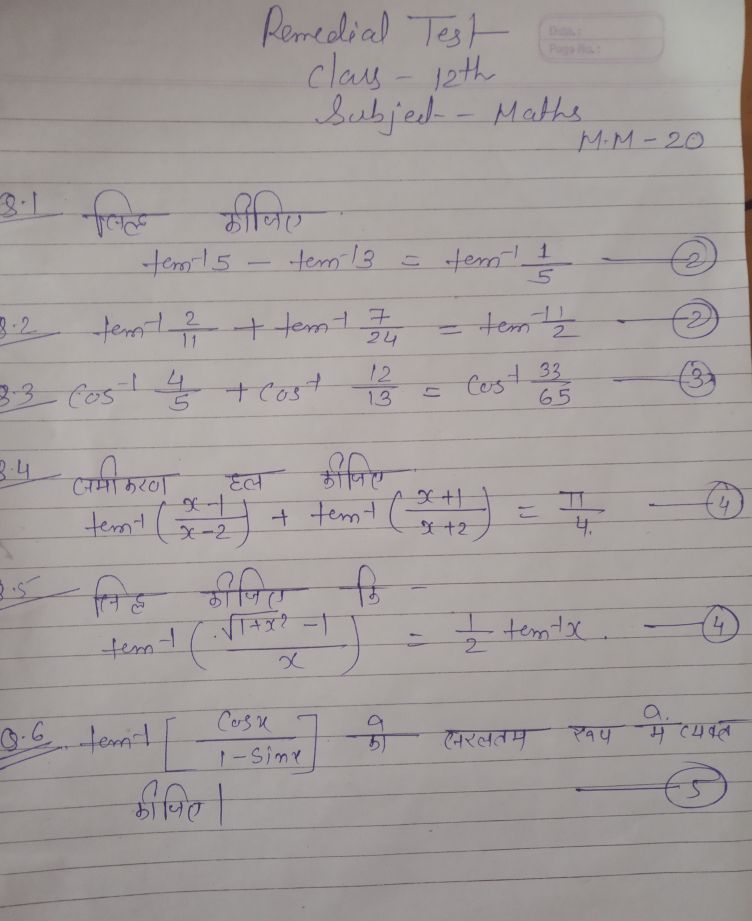 Remedial Test
Date :
Page No. :
Class - 12th
Subject - Maths
M.M - 20
Q.1 सिद्ध कीजिए
tan⁻¹5 - tan⁻¹3 = tan⁻¹ 1/5 — 2
Q.2 tan⁻¹ 2/11 + tan⁻¹ 7/24 = tan⁻¹ 1/2 — 2
Q.3 Cos⁻¹ 4/5 + Cos⁻¹ 12/13 = Cos⁻¹ 33/65 — 3
Q.4 समीकरण हल कीजिए
tan⁻¹ (x-1/x-2) + tan⁻¹ (x+1/x+2) = π/4. — 4
Q.5 सिद्ध कीजिए कि -
tan⁻¹ (√1+x² - 1/x) = 1/2 tan⁻¹x. — 4
Q.6 tan⁻¹ [Cosx/1-Sinx] को सरलतम रूप में व्यक्त
कीजिए | — 5